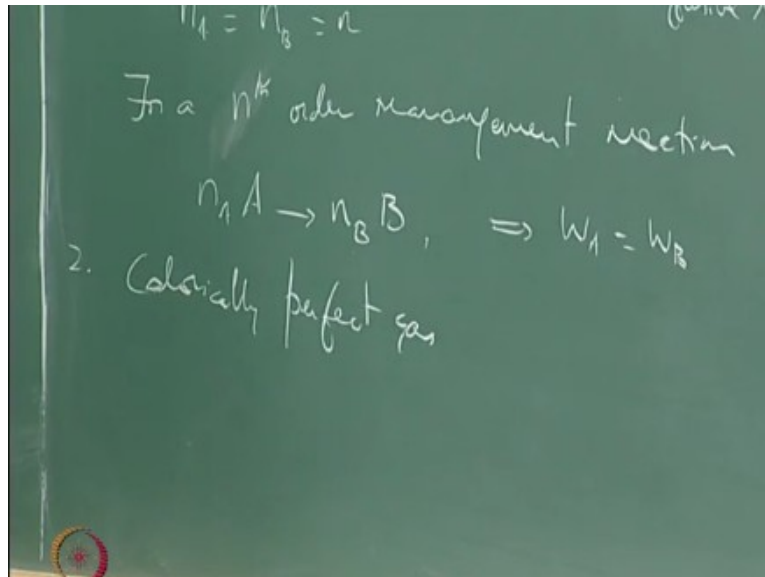 n_A = n_B = n
In a nth order rearrangement reaction
n_A A → n_B B, ⇒ W_A = W_B
2. Calorically perfect gas